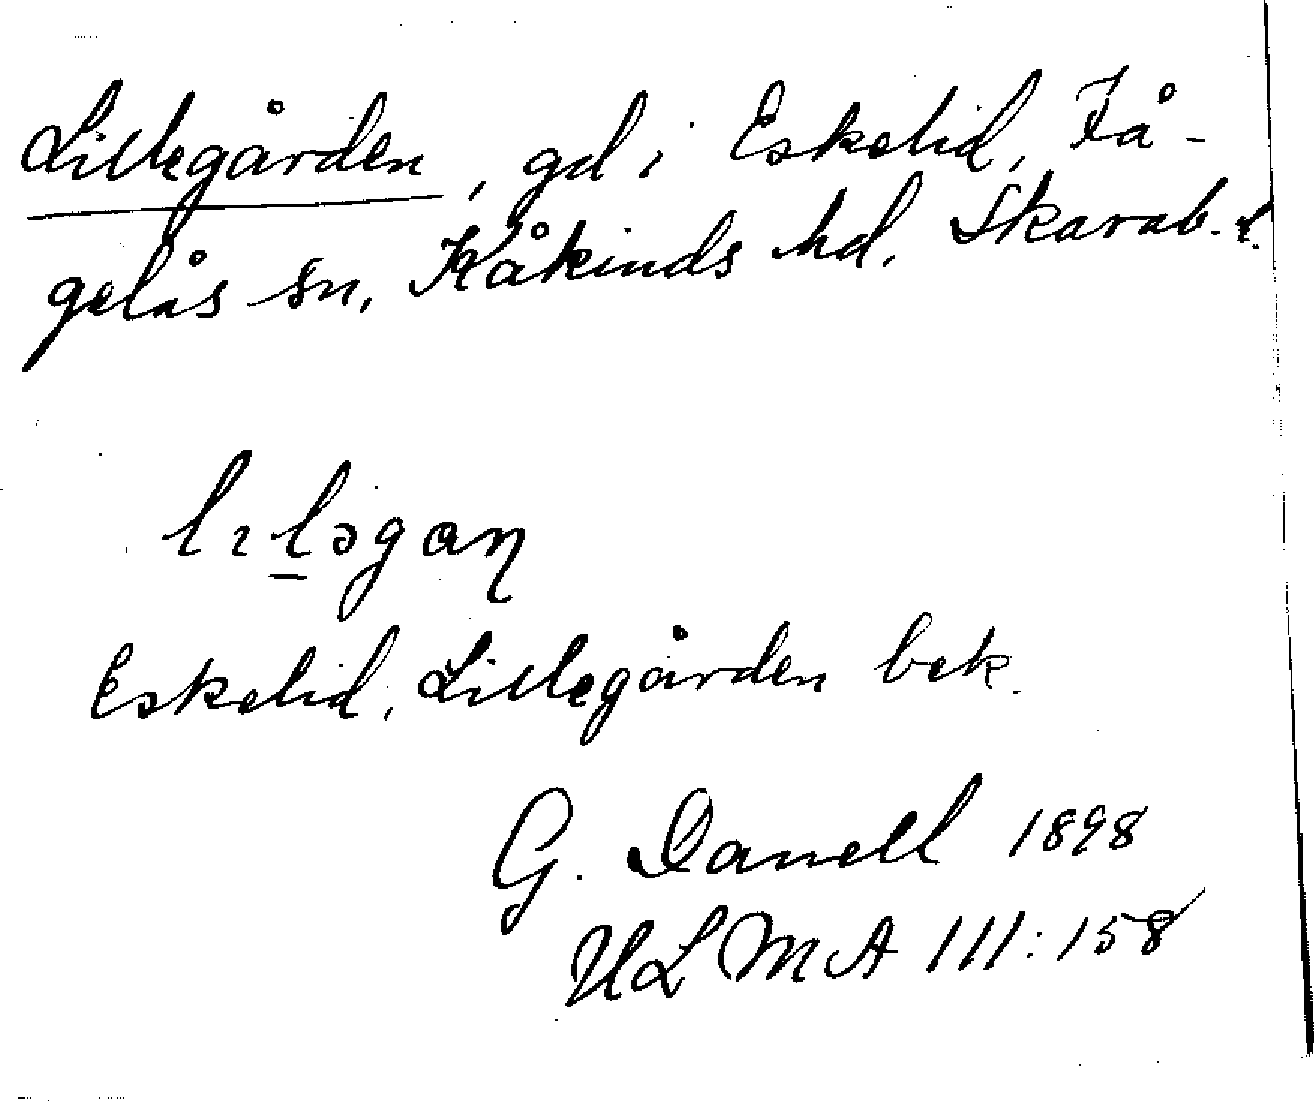 Lillegården, gd i Eskelid, Få-
gelås sn, Kåkinds hd, Skarab. l.
lıləgaɳ
Eskelid, Lillegården bek.
G. Danell 1898
ULMA 111:158